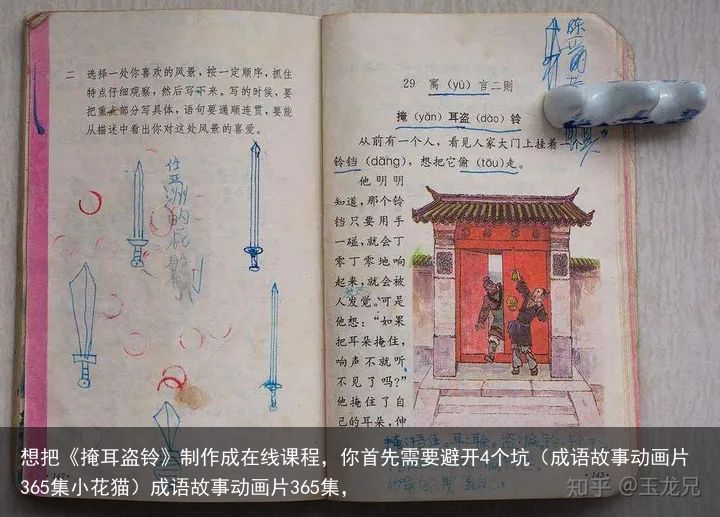 二 选择一处你喜欢的风景，按一定顺序，抓住
特点仔细观察，然后写下来。写的时候，要
把重点部分写具体，语句要通顺连贯，要能
从描述中看出你对这处风景的喜爱。
29 寓（yù）言二则
掩（yǎn）耳盗（dào）铃
从前有一个人，看见人家大门上挂着一
铃铛（dāng），想把它偷（tōu）走。
他明明
知道，那个铃
铛只要用手
一碰，就会丁
零丁零地响
起来，就会被
人发觉。可是
他想：“如果
把耳朵掩住，
响声不就听
不见了吗？”
他掩住了自
己的耳朵，伸
143
想把《掩耳盗铃》制作成在线课程，你首先需要避开4个坑（成语故事动画片
365集小花猫）成语故事动画片365集，
知乎 @玉龙兄